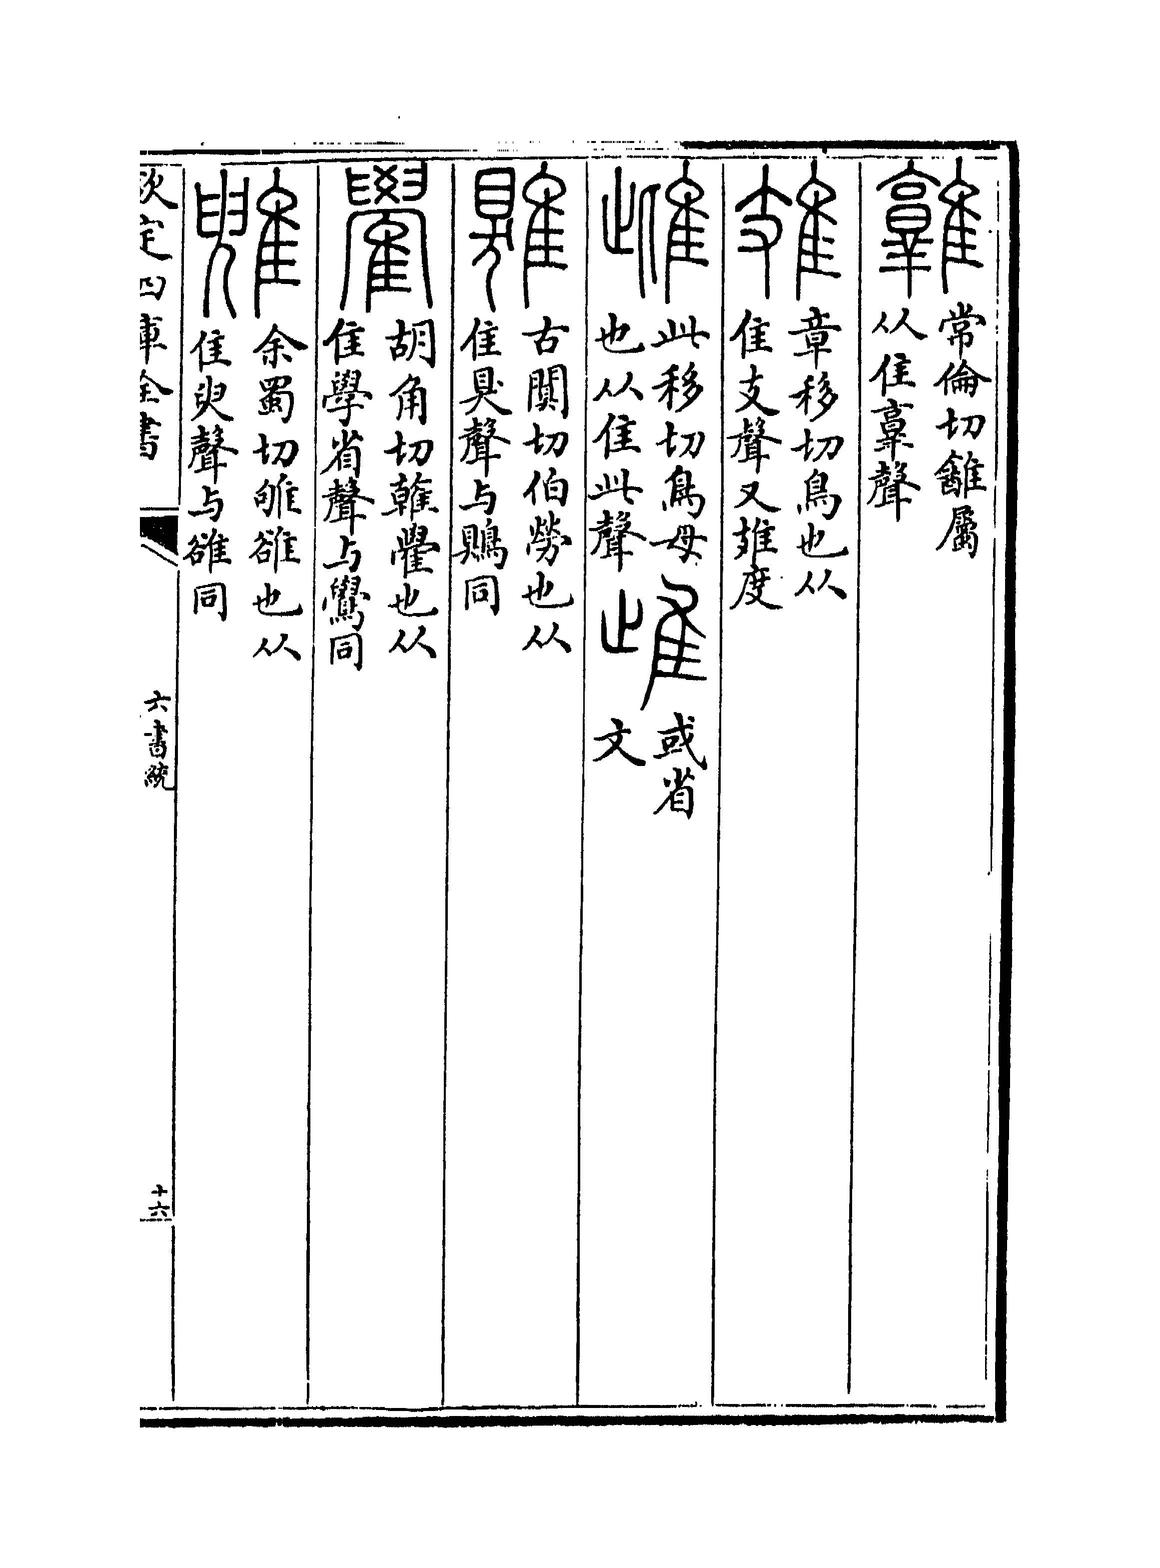 常倫切䨄屬
从隹𦎧聲
章移切鳥也从
隹支聲又雉度
雌
此移切鳥母
也从隹此聲
或省
文
古闃切伯勞也从
隹狊聲与鶪同
胡角切雗𩁔也从
隹學省聲与鷽同
余蜀切雊𨿜也从
隹臾聲与𨿜同
欽定四庫全書
六書統
十六